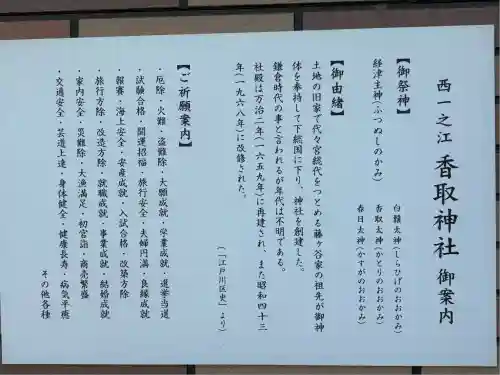 西一之江 香取神社 御案内
【御祭神】
経津主神(ふつぬしのかみ)
白鬚太神(しらひげのおおかみ)
香取太神(かとりのおおかみ)
春日太神(かすがのおおかみ)
【御由緒】
土地の旧家で代々宮総代をつとめる藤ヶ谷家の祖先が御神
体を奉持して下総国に下り、神社を創建した。
鎌倉時代の事と言われるが年代は不明である。
社殿は万治二年(一六五九年)に再建され、また昭和四十三
年(一九六八年)に改修された。
(「江戸川区史」より)
【ご祈願案内】
・厄除・火難・盗難除・大願成就・学業成就・選挙当選
・試験合格・開運招福・旅行安全・夫婦円満・良縁成就
・報賽・海上安全・安産成就・入試合格・改築方除
・旅行方除・改造方除・就職成就・事業成就・結婚成就
・家内安全・災難除・大漁満足・初宮詣・商売繁盛
・交通安全・芸道上達・身体健全・健康長寿・病気平癒
その他各種